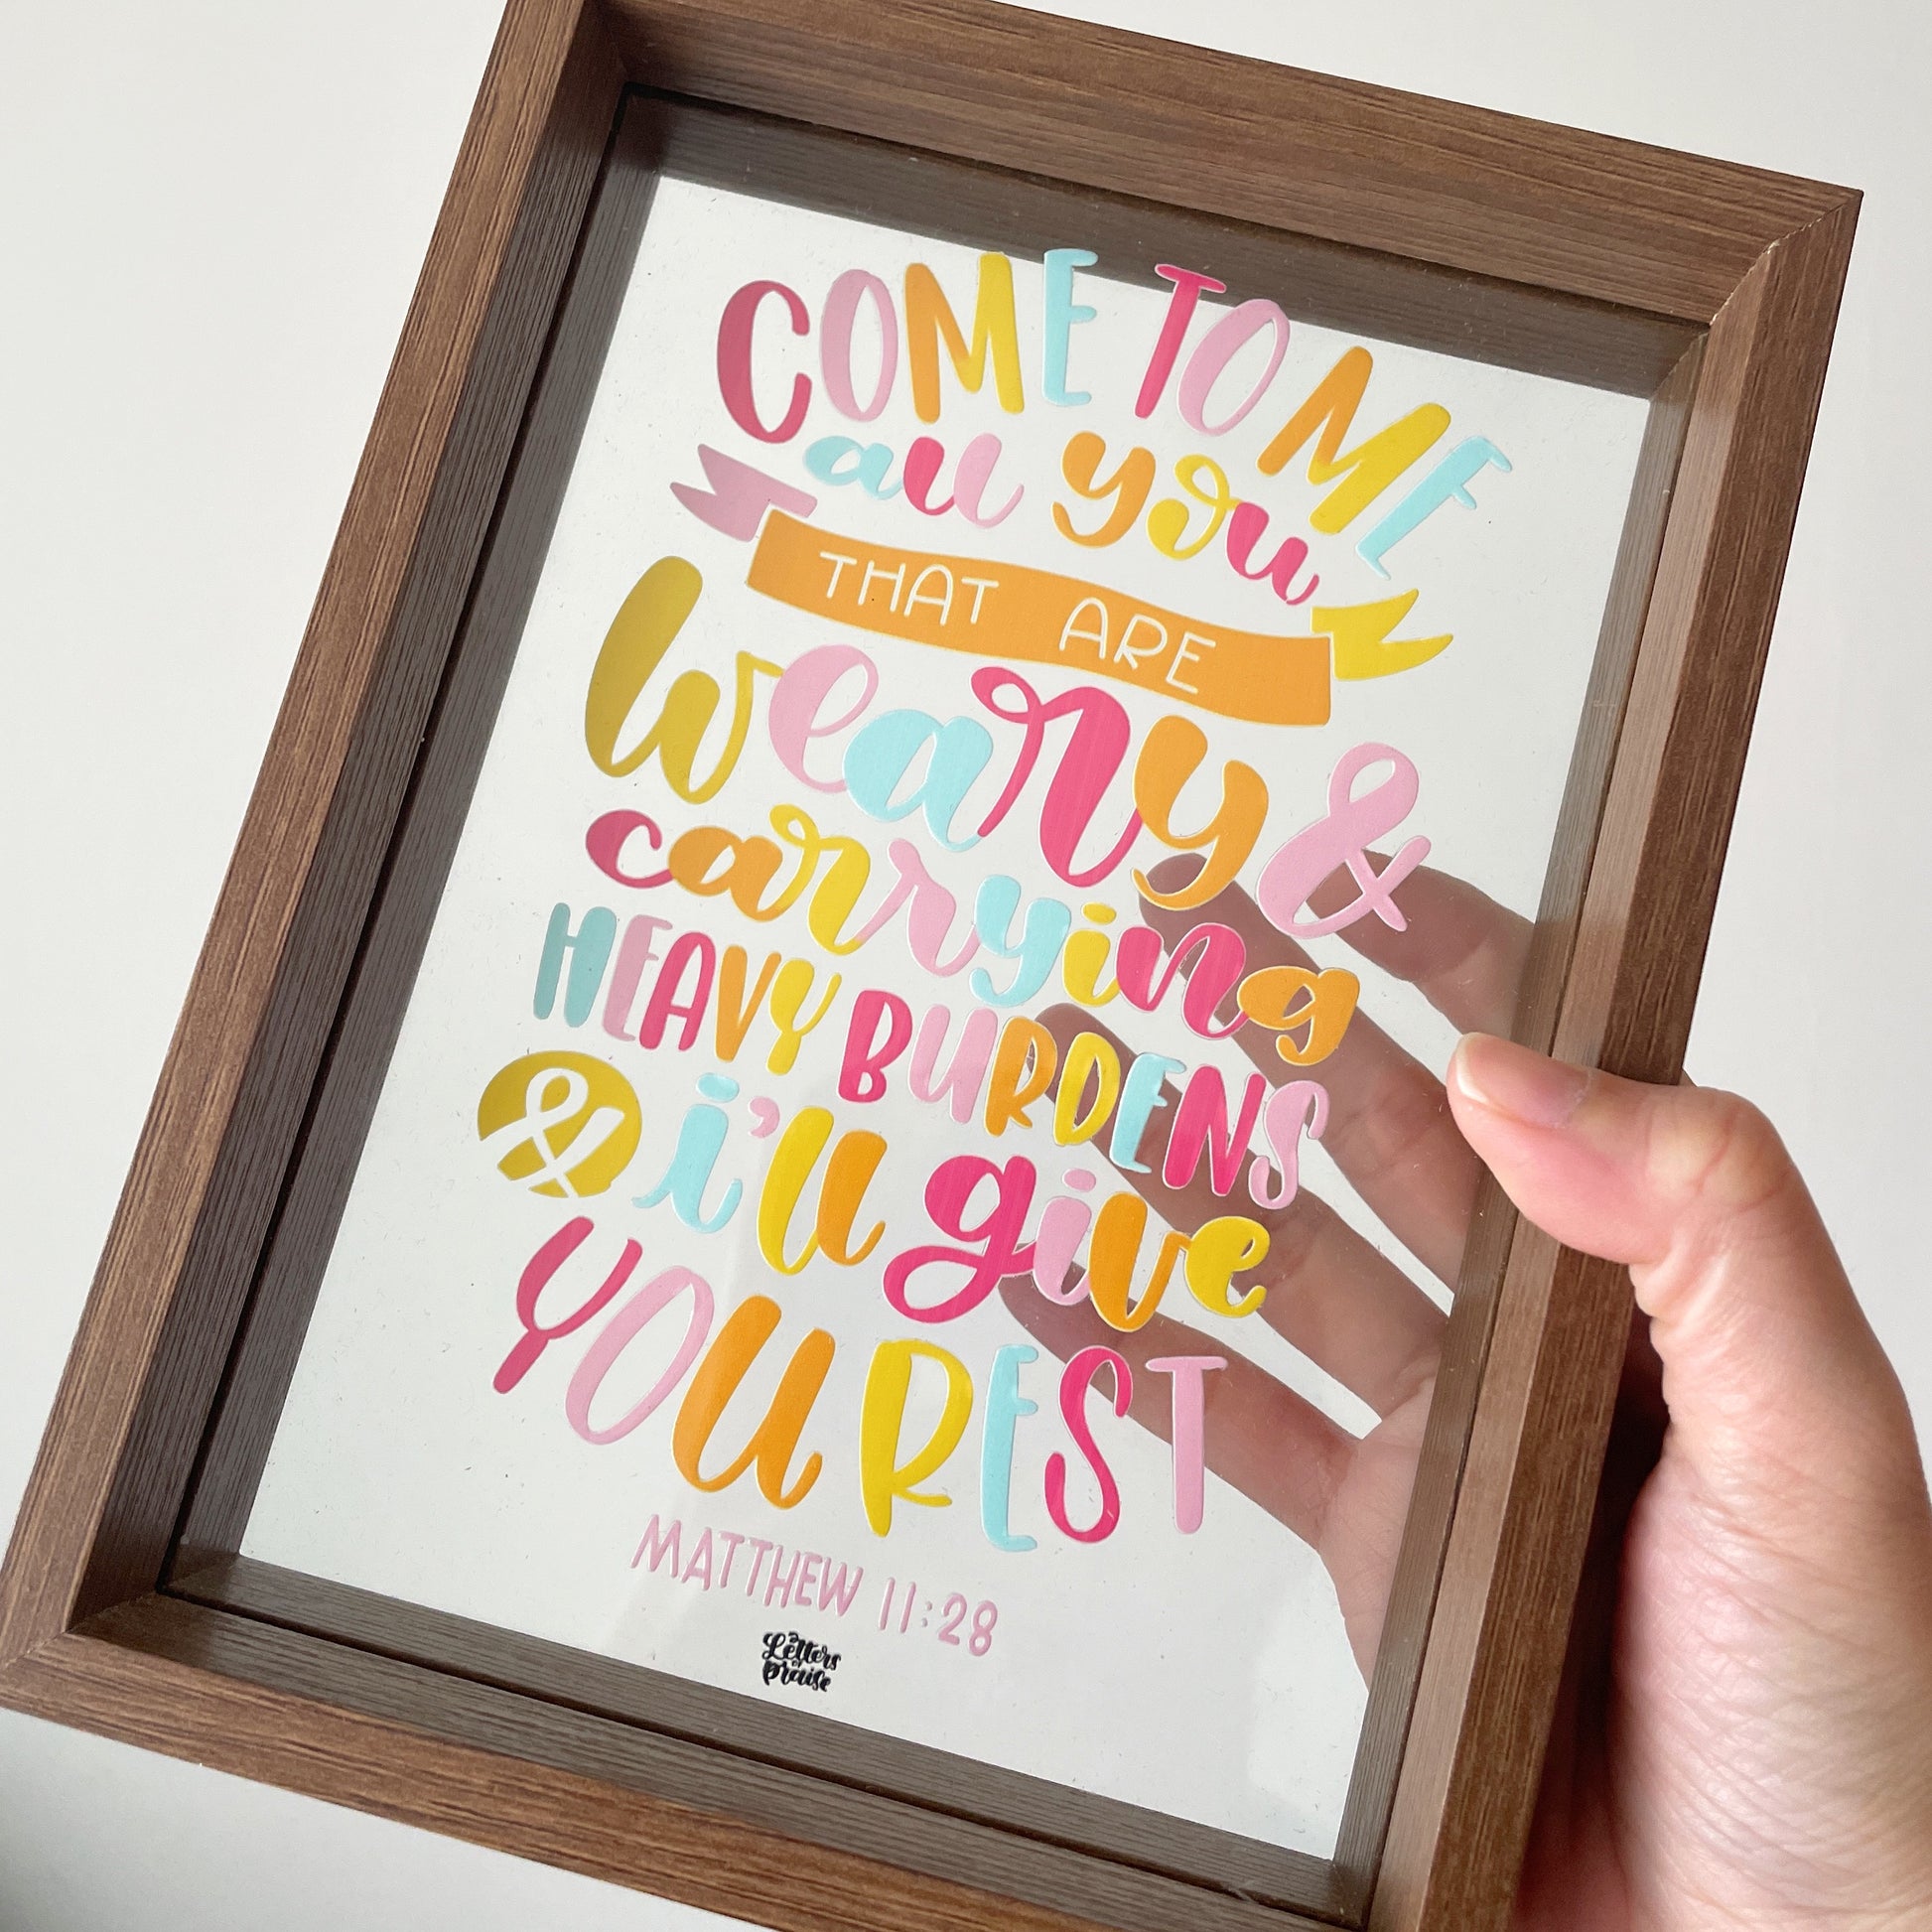 COME TO ME
all you
THAT ARE
weary &
carrying
HEAVY BURDENS
& i'll give
YOU REST
MATTHEW 11:28
Letters
of
praise